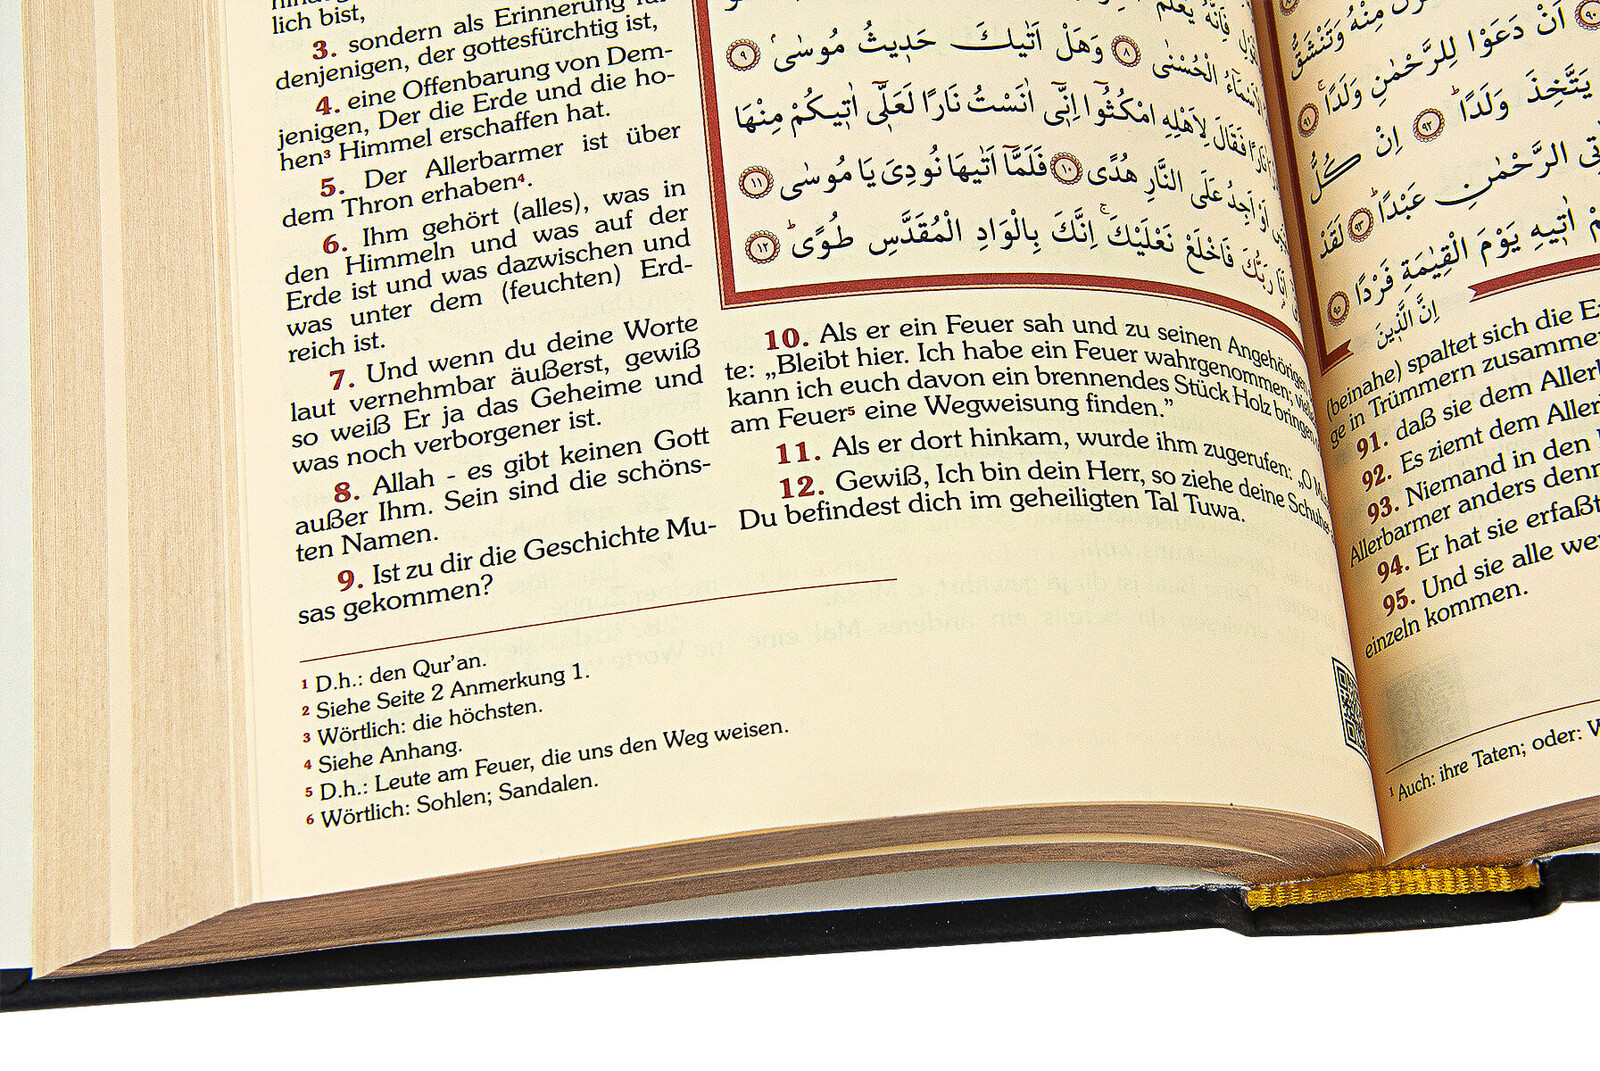 lich bist,
3. sondern als Erinnerung für
denjenigen, der gottesfürchtig ist,
4. eine Offenbarung von Dem-
jenigen, Der die Erde und die ho-
hen³ Himmel erschaffen hat.
5. Der Allerbarmer ist über
dem Thron erhaben⁴.
6. Ihm gehört (alles), was in
den Himmeln und was auf der
Erde ist und was dazwischen und
was unter dem (feuchten) Erd-
reich ist.
7. Und wenn du deine Worte
laut vernehmbar äußerst, gewiß
so weiß Er ja das Geheime und
was noch verborgener ist.
8. Allah - es gibt keinen Gott
außer Ihm. Sein sind die schöns-
ten Namen.
9. Ist zu dir die Geschichte Mu-
sas gekommen?
الْاَسْمَٓاءُ الْحُسْنٰى ﴿٨﴾ وَهَلْ اَتٰيكَ حَد۪يثُ مُوسٰىۢ ﴿٩﴾
نَارًا فَقَالَ لِاَهْلِهِ امْكُثُٓوا اِنّ۪ٓي اٰنَسْتُ نَارًا لَعَلّ۪ٓي اٰت۪يكُمْ مِنْهَا
اَوْ اَجِدُ عَلَى النَّارِ هُدًى ﴿١٠﴾ فَلَمَّٓا اَتٰيهَا نُودِيَ يَا مُوسٰى ﴿١١﴾
اَنَا۬ رَبُّكَ فَاخْلَعْ نَعْلَيْكَۚ اِنَّكَ بِالْوَادِ الْمُقَدَّسِ طُوًىۜ ﴿١٢﴾
10. Als er ein Feuer sah und zu seinen Angehörigen
te: „Bleibt hier. Ich habe ein Feuer wahrgenommen;
kann ich euch davon ein brennendes Stück Holz bringen,
am Feuer⁵ eine Wegweisung finden.”
11. Als er dort hinkam, wurde ihm zugerufen: „O
12. Gewiß, Ich bin dein Herr, so ziehe deine Schuhe
Du befindest dich im geheiligten Tal Tuwa.
¹ D.h.: den Qur’an.
² Siehe Seite 2 Anmerkung 1.
³ Wörtlich: die höchsten.
⁴ Siehe Anhang.
⁵ D.h.: Leute am Feuer, die uns den Weg weisen.
⁶ Wörtlich: Sohlen; Sandalen.
مِنْهُ وَتَنْشَقُّ
اَنْ دَعَوْا لِلرَّحْمٰنِ وَلَدًاۚ ﴿٩١﴾
يَتَّخِذَ وَلَدًاۜ ﴿٩٢﴾ اِنْ كُلُّ
الرَّحْمٰنِ عَبْدًاۜ ﴿٩٣﴾ لَقَدْ
اٰت۪يهِ يَوْمَ الْقِيٰمَةِ فَرْدًا ﴿٩٥﴾
اِنَّ الَّذ۪ينَ
(beinahe) spaltet sich die
ge in Trümmern
91. daß sie dem
92. Es ziemt dem
93. Niemand in den
Allerbarmer anders denn
94. Er hat sie erfaßt
95. Und sie alle
einzeln kommen.
¹ Auch: ihre Taten; oder: